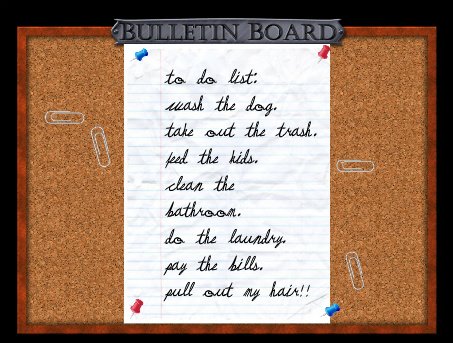 BULLETIN BOARD
to do list:
wash the dog.
take out the trash.
feed the kids.
clean the
bathroom.
do the laundry.
pay the bills.
pull out my hair!!